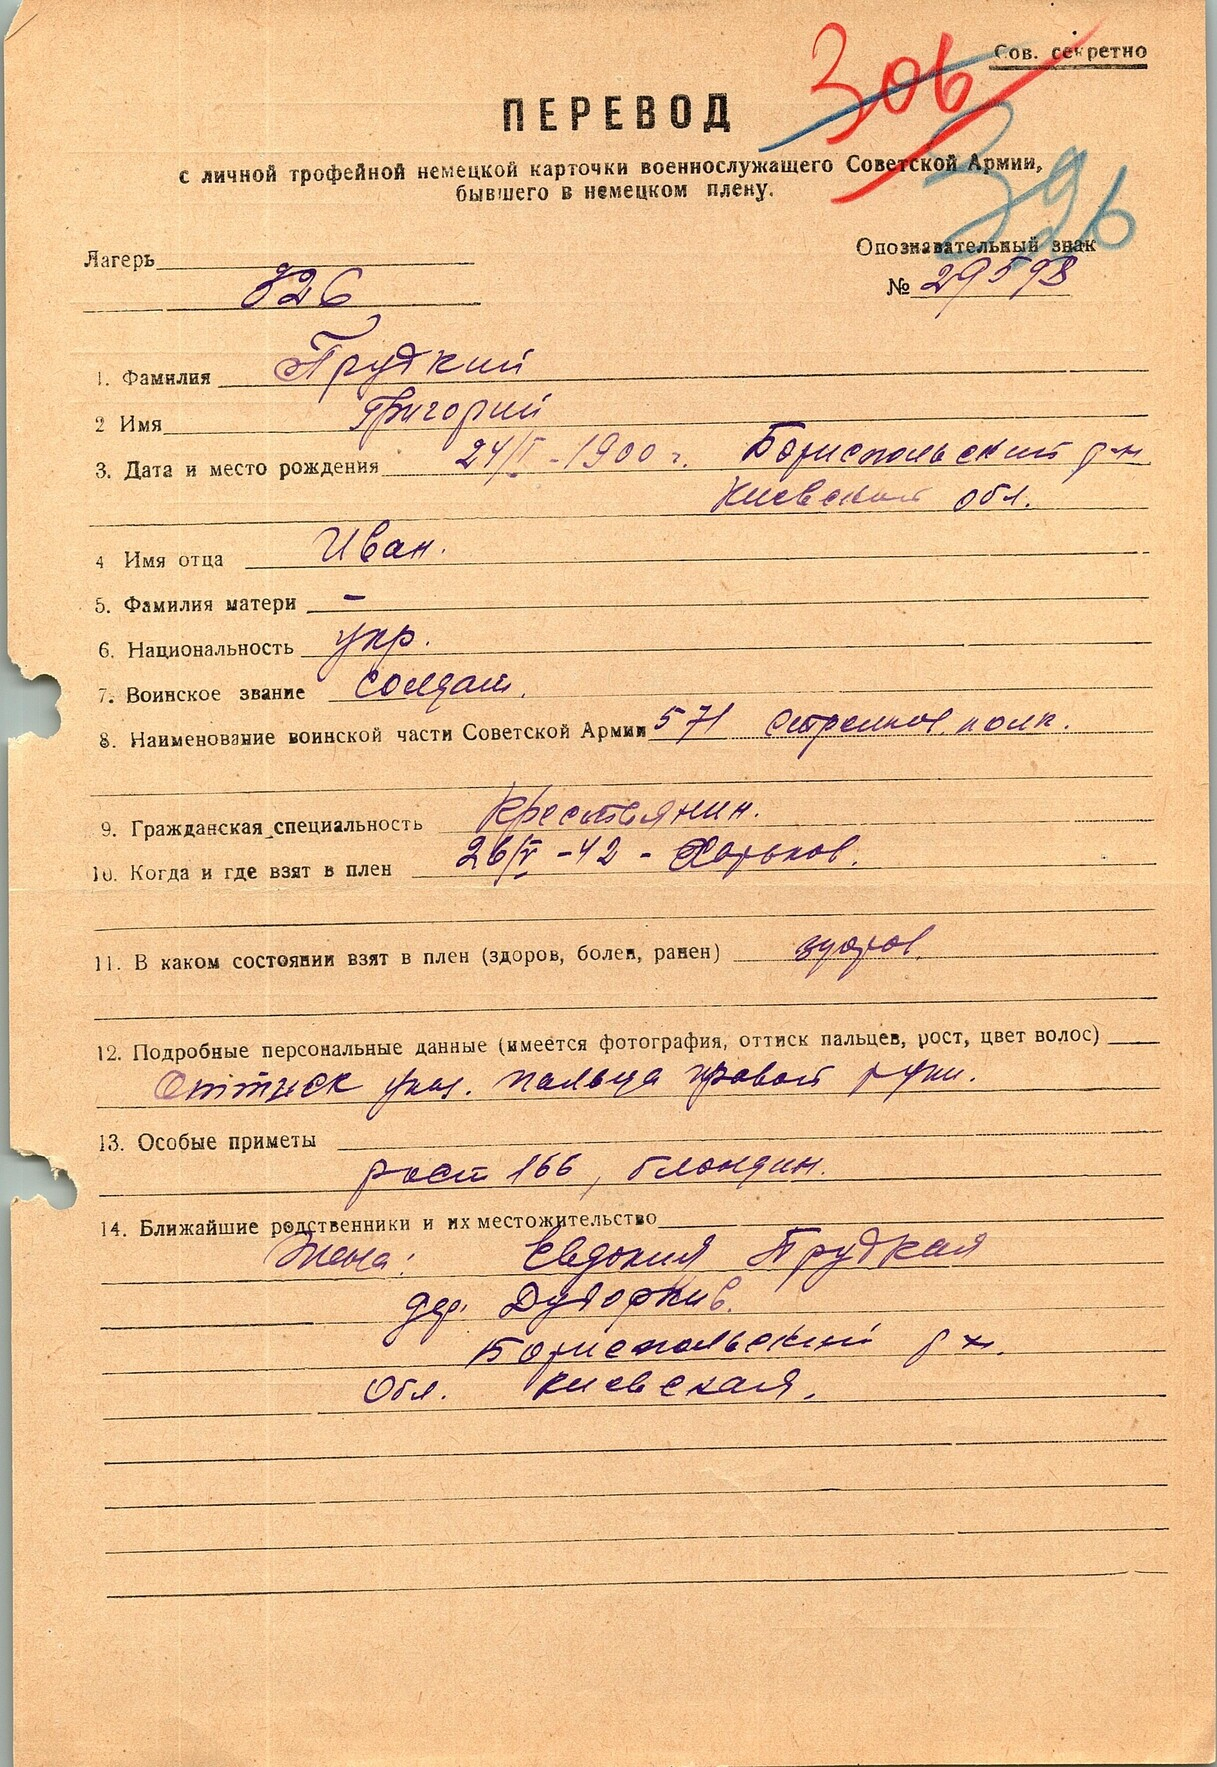 306
Сов. секретно
ПЕРЕВОД
396
с личной трофейной немецкой карточки военнослужащего Советской Армии,
бывшего в немецком плену.
Лагерь
Опознавательный знак
326
№ 29598
1. Фамилия Прудкий
2 Имя Григорий
3. Дата и место рождения 1900 г. Бориспольский р-н
Киевской обл.
4 Имя отца Иван.
5. Фамилия матери –
6. Национальность укр.
7. Воинское звание солдат.
8. Наименование воинской части Советской Армии 571 стрелков. полк.
9. Гражданская специальность Крестьянин.
10. Когда и где взят в плен 26/V -42 - Харьков.
11. В каком состоянии взят в плен (здоров, болен, ранен) здоров.
12. Подробные персональные данные (имеется фотография, оттиск пальцев, рост, цвет волос)
Оттиск указ. пальца правой руки.
13. Особые приметы
рост 166, блондин.
14. Ближайшие родственники и их местожительство
Жена: Евдокия Прудкая
дер.
Бориспольский р-н.
Обл. Киевская.